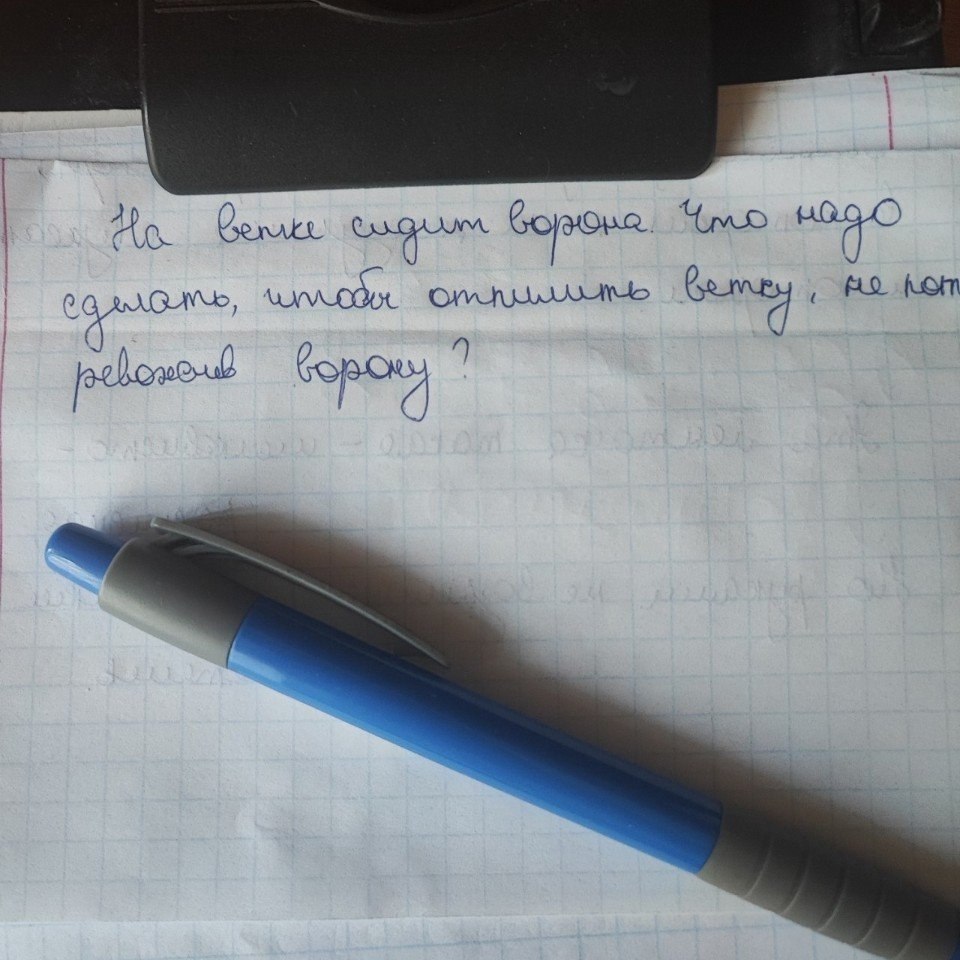 На ветке сидит ворона. Что надо
сделать, чтобы отпилить ветку, не пот
ревожив ворону?